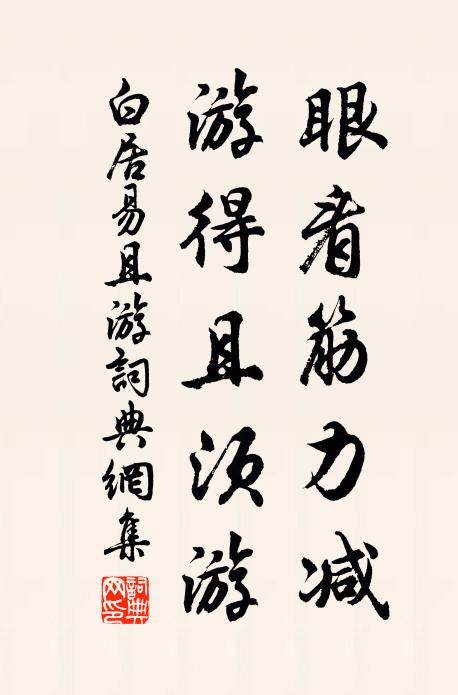 眼看筋力减
游得且须游
白居易且游詞典網集
詞典网印